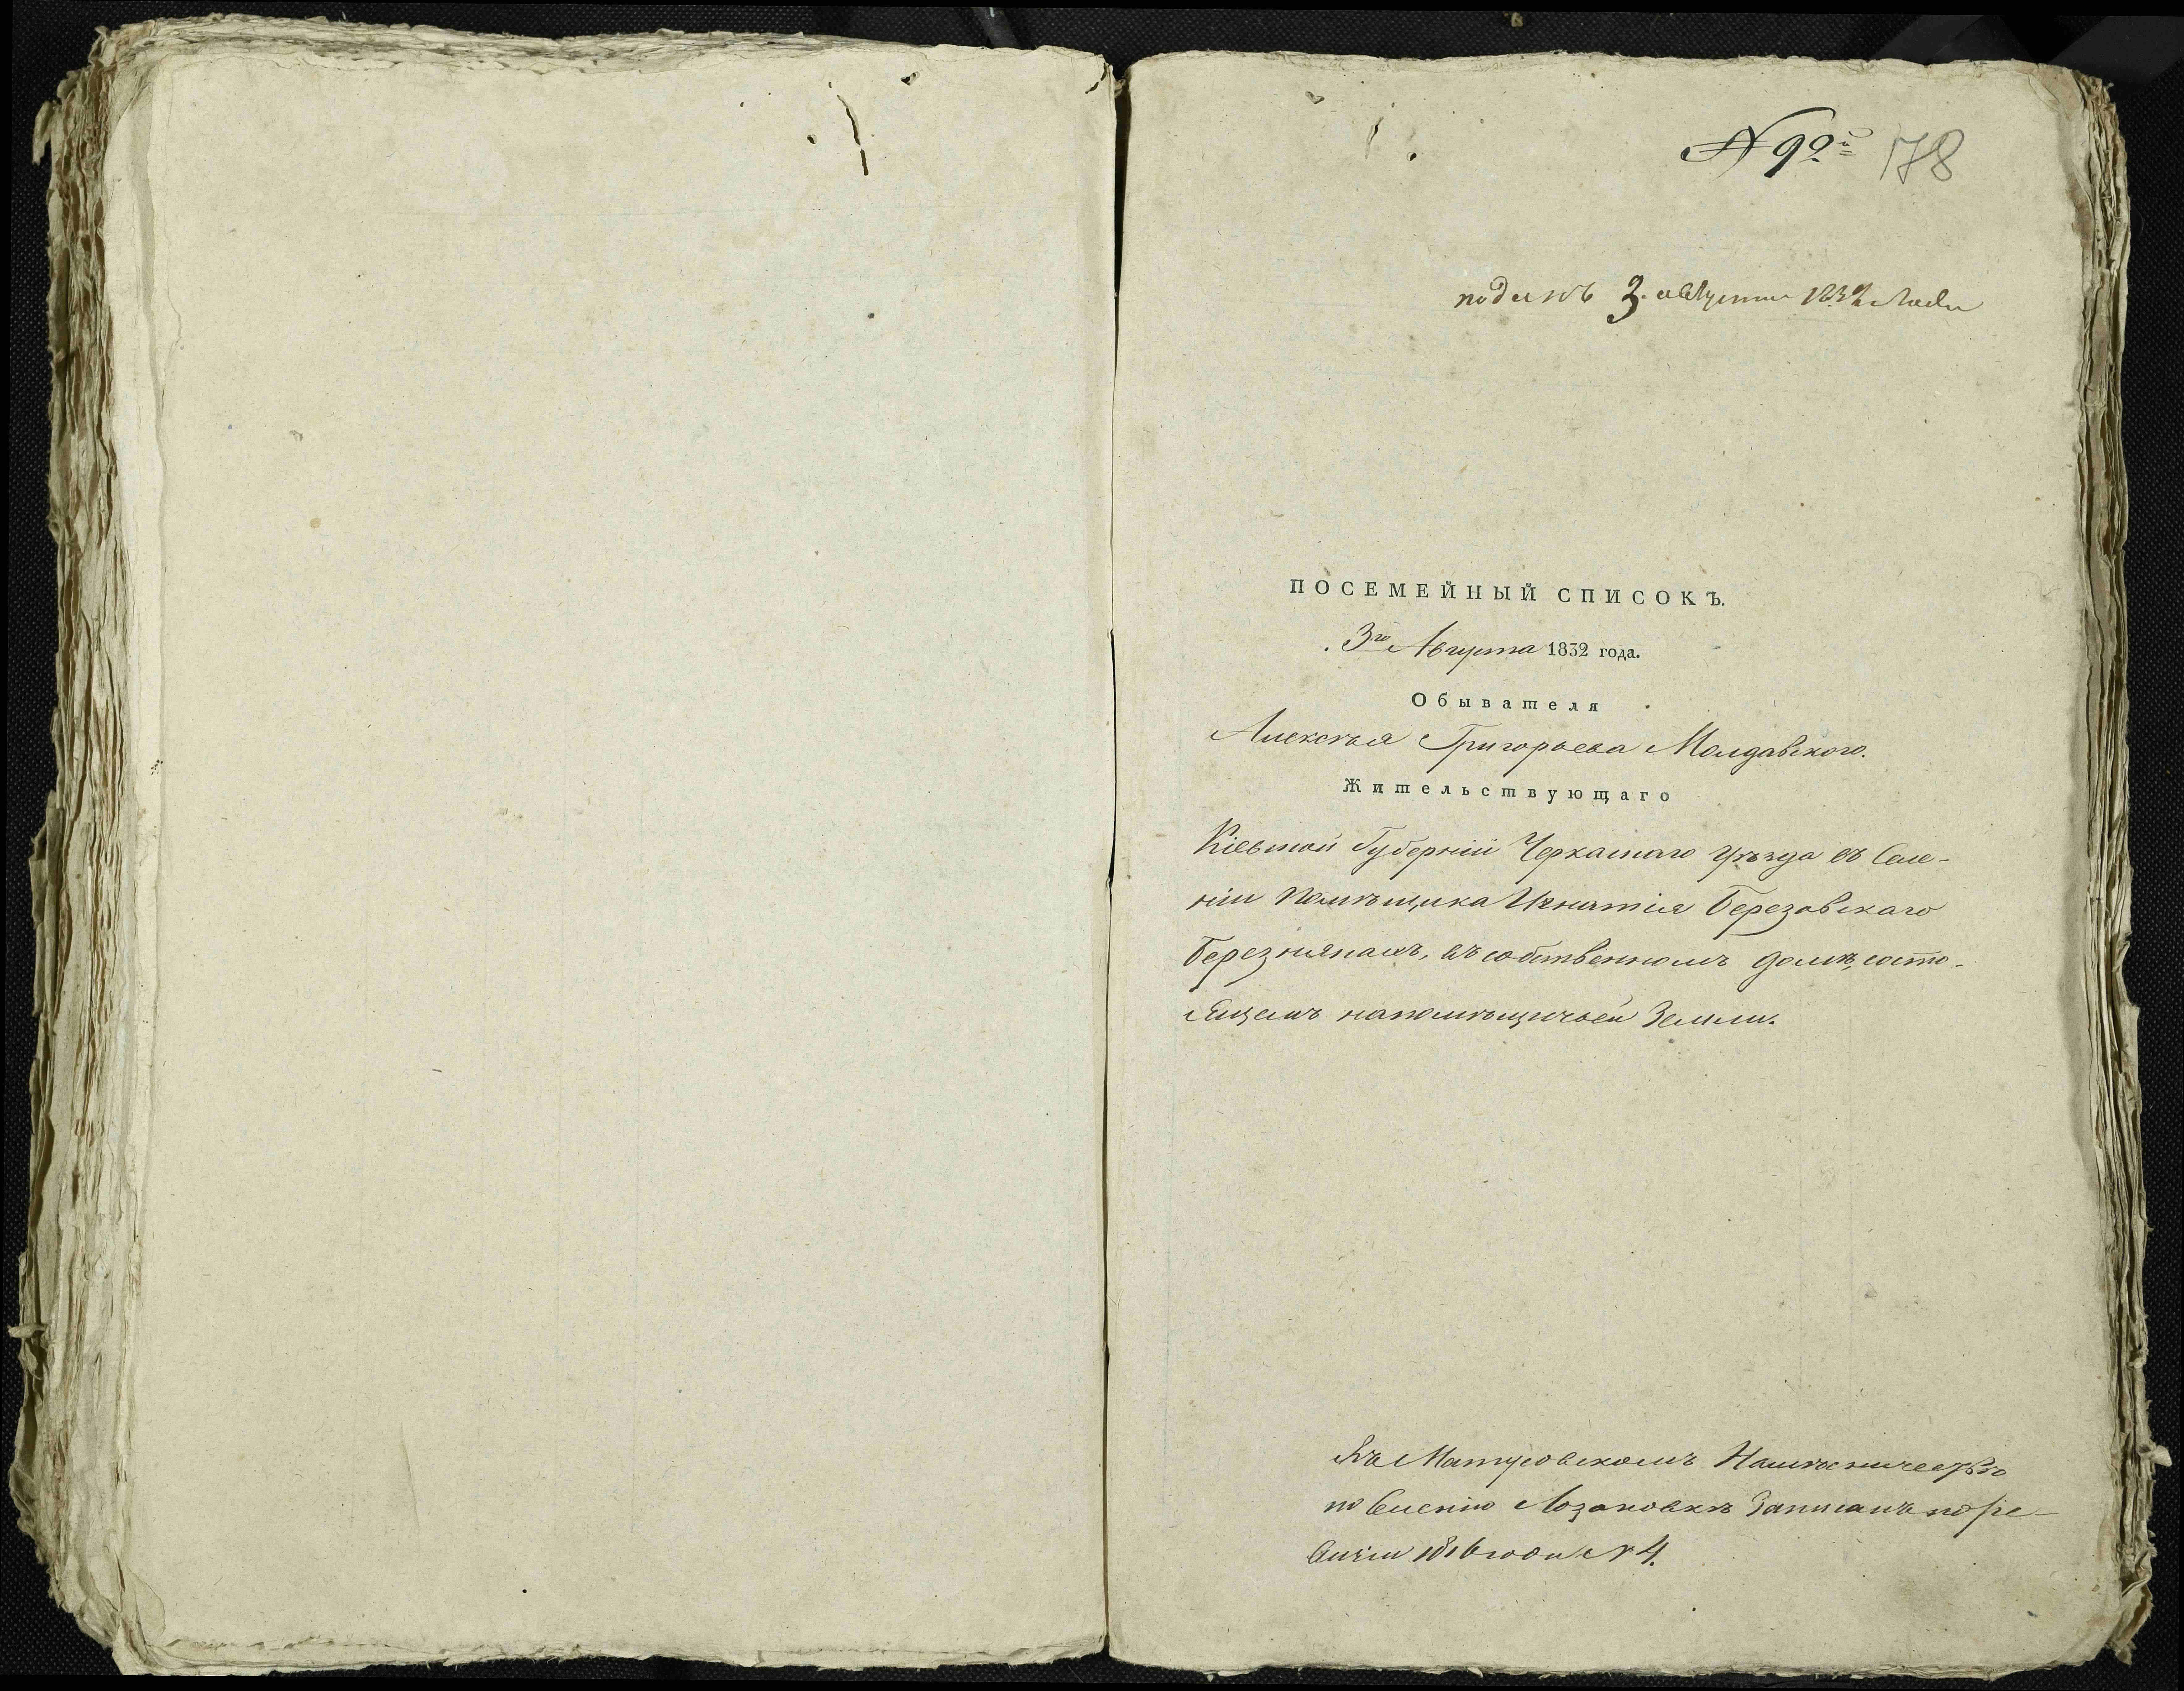 № 90й 178
поданъ 3. августа 1832 года
ПОСЕМЕЙНЫЙ СПИСОКЪ.
3го Августа 1832 года.
Обывателя
Алексѣя Григорьева Молдавского.
Жительствующаго
Кіевской Губерніи Черкаскаго уѣзда въ Селе-
ніи Помѣщика Игнатія Березовскаго
Березнякахъ, въ собственномъ домѣ, состо-
ящемъ на помѣщичьей Земли.
Въ Матусовскомъ Намѣсничествѣ
по Селенію Лозановкѣ Записанъ по ре-
визіи 1816 года № 4.